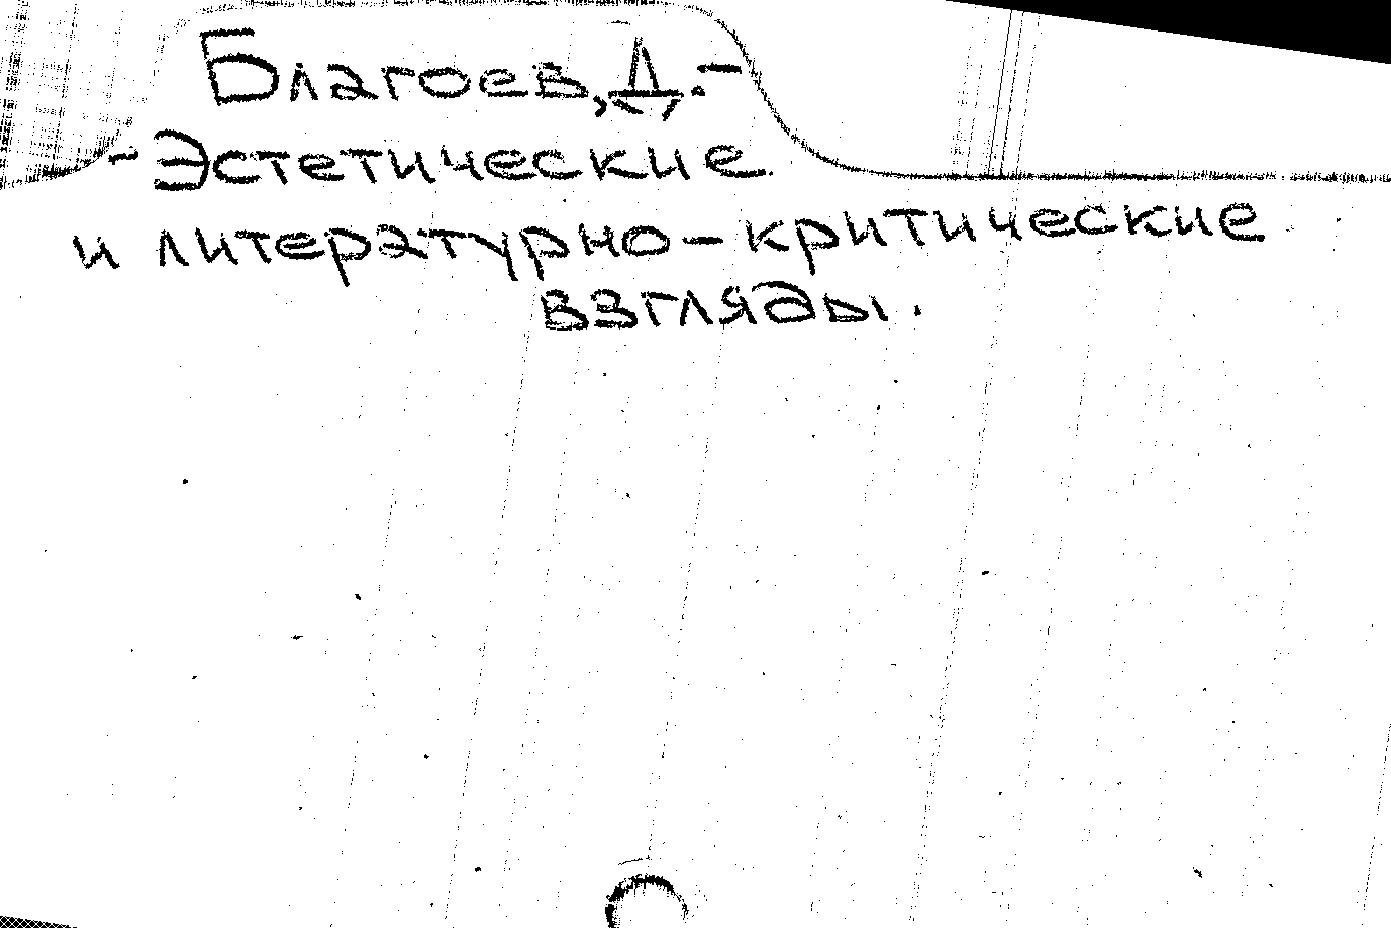 Благоев, Д. -
- Эстетические
и литературно - критические
взгляды.